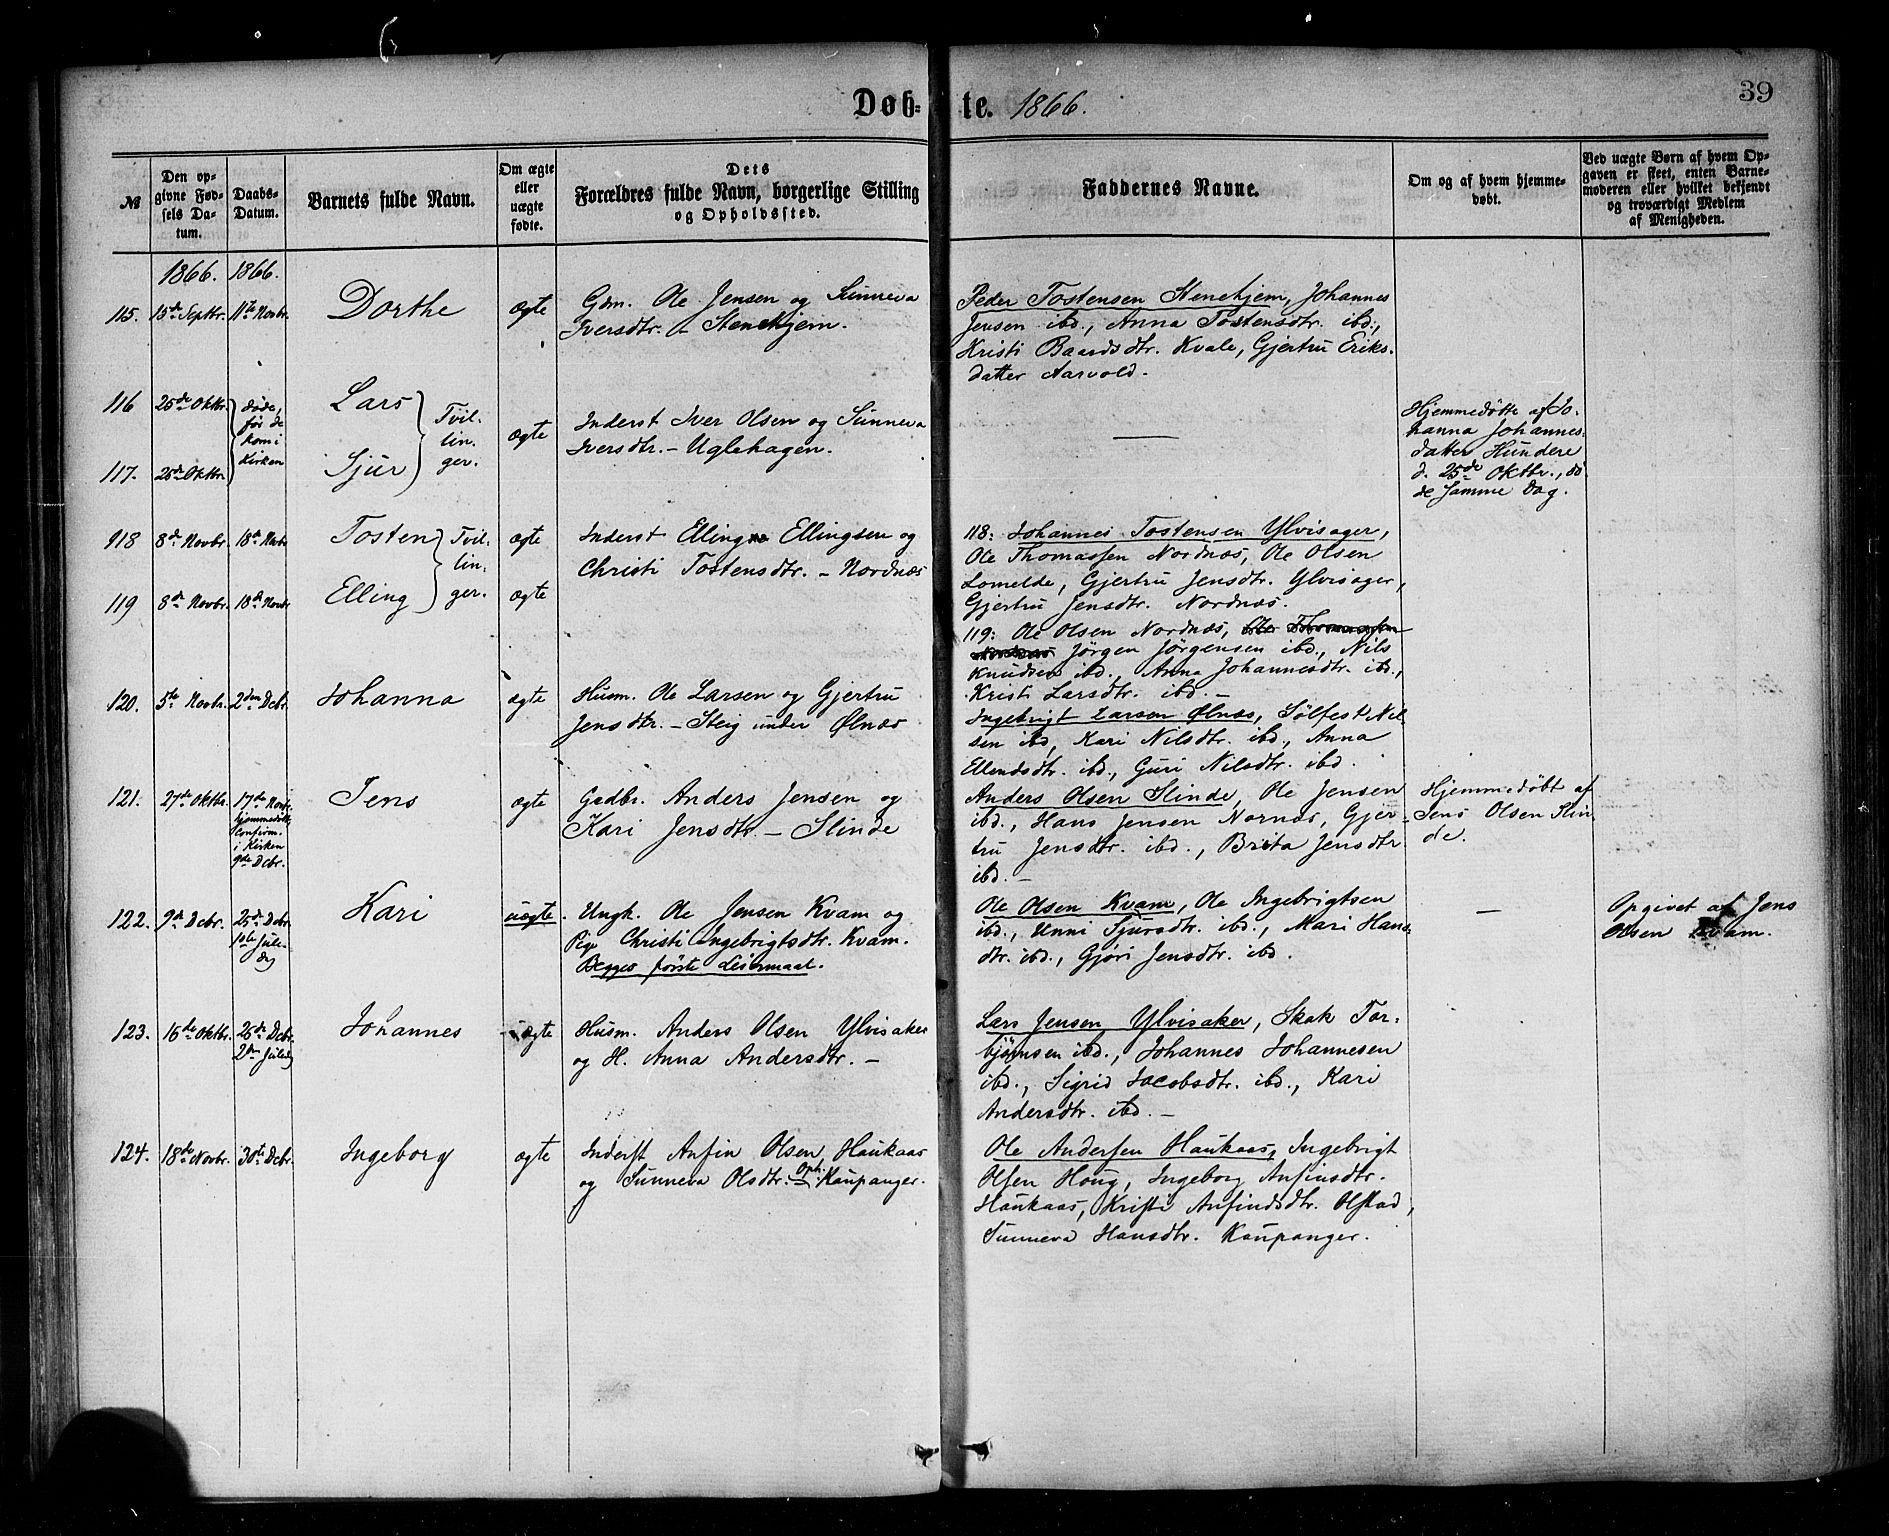 39
Døb- te. 1866.
№
Den op-
givne Fød-
sels Da-
tum.
Daabs-
Datum.
Barnets fulde Navn.
Om ægte
eller
uægte
fødte.
Dets
Forældres fulde Navn, borgerlige Stilling
og Opholdssted.
Faddernes Navne.
Om og af hvem hjemme-
døbt.
Ved uægte Børn af hvem Op-
gaven er skeet, enten Barne-
moderen eller hvilket bekjendt
og troværdigt Medlem
af Menigheden.
1866. 1866.
115. 15de Septbr. 11te Novbr. Dorthe ægte
Gdm. Ole Jensen og Sunneva
Iversdtr. - Stenehjem.
Peder Tostensen Stenehjem, Johannes
Jensen ibd., Anna Tostensdtr. ibd.,
Kristi Baardsdtr. Kvale, Gjertru Eriks-
datter Aarvold.
116 25de Oktbr. Lars
117. 25de Oktbr. Sjur
døde,
før de
kom i
Kirken
Tvil-
lin-
ger.
ægte
Inderst Iver Olsen og Sunneva
Iversdtr. - Uglehagen.
Hjemmedøbte af Jo-
hanna Johannes-
datter Hundere
d. 25de Oktbr., dø-
de samme Dag.
118 8de Novbr. 18de Novbr Tosten ægte
119 8de Novbr. 18de Novbr Elling ægte
Tvil-
lin-
ger.
Inderst Elling Ellingsen og
Christi Tostensdtr. - Nordnæs
118: Johannes Tostensen Ylvisager,
Ole Thomassen Nordnæs, Ole Olsen
Lomelde, Gjertru Jensdtr. Ylvisager,
Gjertru Jensdtr. Nordnæs.
119: Ole Olsen Nordnæs, Ole Thomassen
Nordnæs Jörgen Jörgensen ibd., Nils
Knudsen ibd., Anna Johannesdtr. ibd.,
Kristi Larsdtr. ibd. -
120. 5te Novbr. 2den Dcbr. Johanna ægte
Husm. Ole Larsen og Gjertru
Jensdtr. - Steig under Ølnæs
Ingebrigt Larsen Ølnæs, Sølfest Nil-
sen ibd, Kari Nilsdtr. ibd., Anna
Ellendsdtr. ibd., Guri Nilsdtr. ibd.
121. 27de Oktbr. 17de Novbr.
hjemmedöbt,
Confirm.
i Kirken
9de Dcbr.
Jens ægte
Gadbr. Anders Jensen og
Kari Jensdtr. - Slinde
Anders Olsen Slinde, Ole Jensen
ibd., Hans Jensen Nornæs, Gjer-
tru Jensdtr. ibd., Brita Jensdtr
ibd. -
Hjemmedøbt af
Jens Olsen Slin-
de.
122. 9de Dcbr. 25de Dcbr.
1ste Jule-
dag
Kari uægte.
Ungk. Ole Jensen Kvam og
Pige Christi Ingebrigtsdtr. Kvam.
Begges første Leiermaal.
Ole Olsen Kvam, Ole Ingebrigtsen
ibd., Unni Sjursdtr. ibd., Mari Hans-
dtr. ibd., Gjøri Jensdtr. ibd.
—
Opgivet af Jens
Olsen Kvam.
123. 16de Oktbr. 26de Dcbr.
2den Juledag
Johannes ægte
Husm. Anders Olsen Ylvisaker
og H. Anna Andersdtr. -
Lars Jensen Ylvisaker, Skak Tor-
bjørnsen ibd., Johannes Johannesen
ibd., Sigrid Jacobsdtr. ibd., Kari
Andersdtr. ibd. -
124. 18de Novbr. 30te Dcbr. Ingeborg ægte
Inderst Anfin Olsen Haukaas
og Sunneva Olsdtr. Oph. Kaupanger.
Ole Andersen Haukaas, Ingebrigt
Olsen Houg, Ingeborg Anfinsdtr.
Haukaas, Kristi Anfindsdtr. Olstad,
Sunneva Hansdtr. Kaupanger.